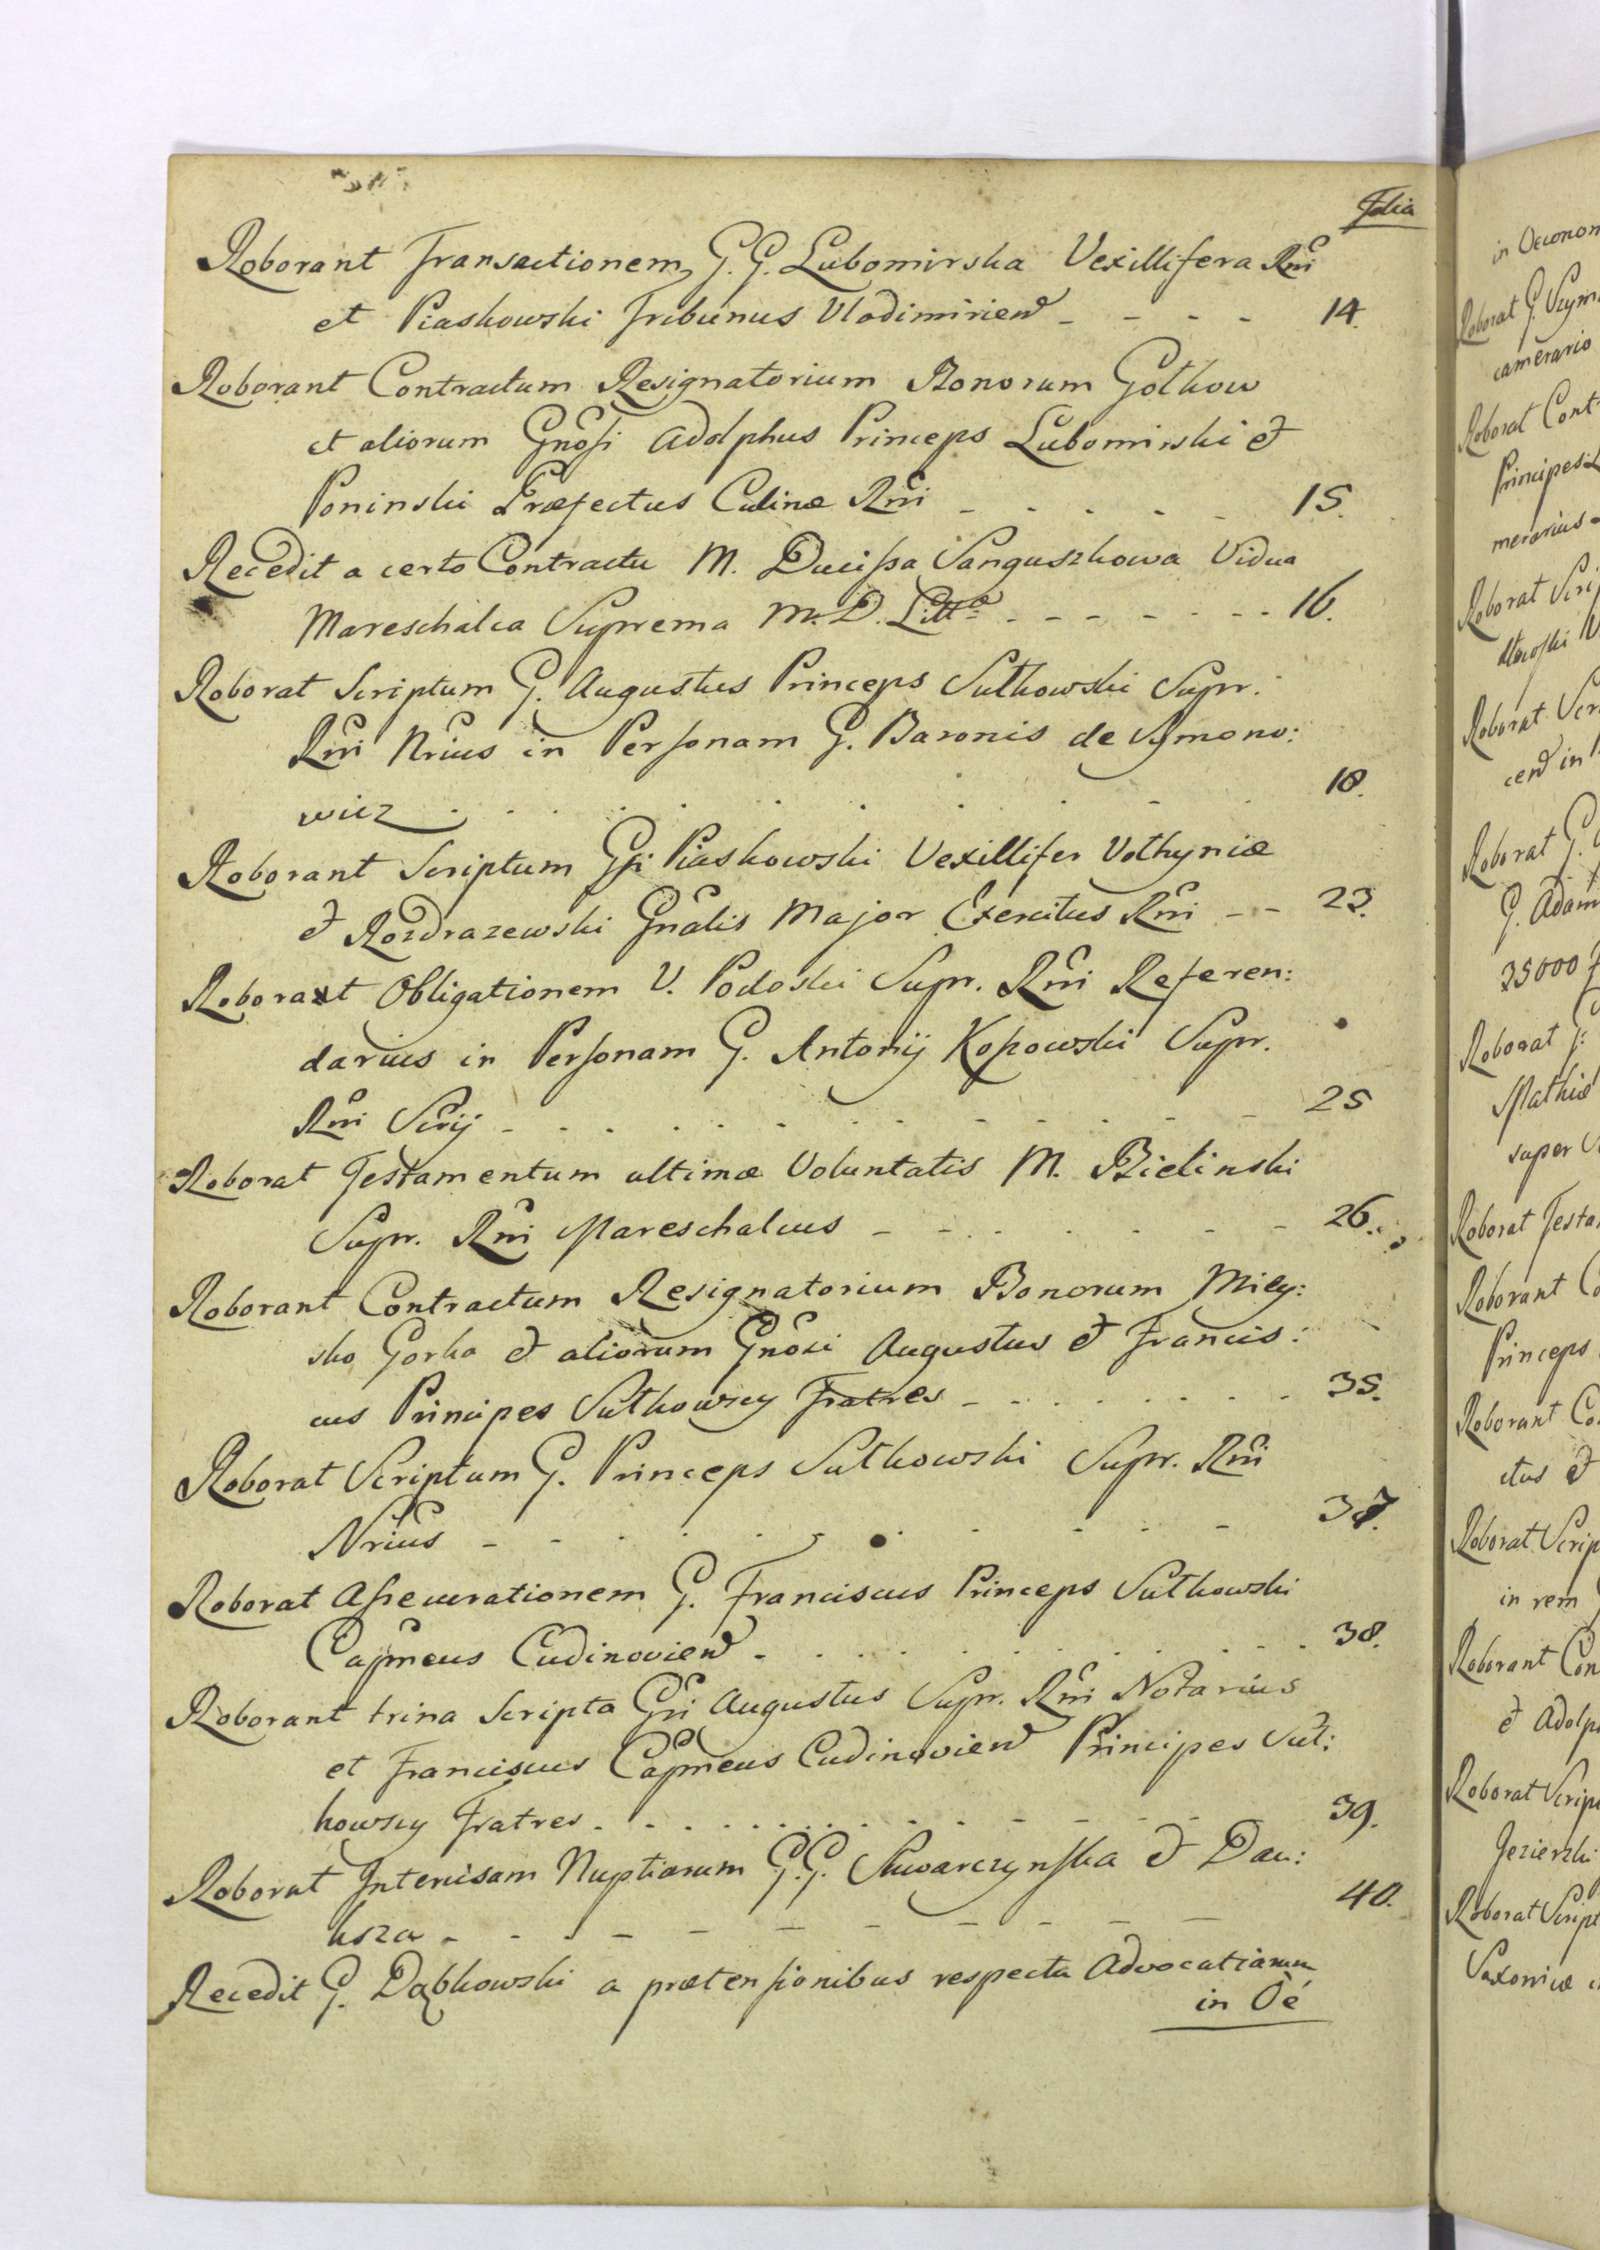 Folia
Roborant Transactionem G. G. Lubomirska Vexillifera Rni
et Piaskowski Tribunus Vladimirien - - - - 14.
Roborant Contractum Resignatorium Bonorum Gołkow
et aliorum Gnosi Adolphus Princeps Lubomirski et
Poninski Præfectus Culinæ Rni - - - - - 15.
Recedit a certo Contractu M. Ducissa Sanguszkowa Vidua
Mareschalca Suprema M. D. Litt. - - - - - - 16.
Roborat Scriptum G. Augustus Princeps Sułkowski Supr.
Rni Nrius in Personam G. Baronis de Symono:
wicz - - - - - - - - - - 18.
Roborant Scriptum Gsi Piaskowski Vexillifer Volhyniæ
et Rozdrazewski Gnalis Major Exercitus Rni - - 23.
Roborat Obligationem V. Podoski Supr. Rni Referen:
darius in Personam G. Antonij Kossowski Supr.
Rni Scrij - - - - - - - - - - 25
Roborat Testamentum ultimæ Voluntatis M. Bielinski
Supr. Rni Mareschalcus - - - - - - - 26.
Roborant Contractum Resignatorium Bonorum Miey:
sko Gorka et aliorum Gnosi Augustus et Francis:
cus Principes Sułkowscy Fratres - - - - - - - 35.
Roborat Scriptum G. Princeps Sułkowski Supr. Rni
Nrius - - - - - - - - - - 37.
Roborat Asseverationem G. Franciscus Princeps Sułkowski
Capneus Cudinovien - - - - - - - - - 38.
Roborant trina Scripta Gsi Augustus Supr. Rni Notarius
et Franciscus Capneus Cudinovien Principes Suł:
kowscy Fratres - - - - - - - - - - 39.
Roborat Intercisam Nuptiarum G. G. Skwarczynska et Dau:
ksza - - - - - - - - - - 40.
Recedit G. Dąbkowski a prætensionibus respectu Advocatiarum
in Oe
in Oeconom
Roborat G. Szym
camerario
Roborat Cont
Principes
merarius
Roborat Scrip
Roborat Scr
cen in
Roborat G.
G. Adam
35000
Roborat
Mathiæ
super
Roborat Testa
Roborant Co
Princeps
Roborant Co
ctus et
Roborat Scrip
in rem
Roborant Con
et Adolp
Roborat Scrip
Jezierski
Roborat Script
Saxoniæ